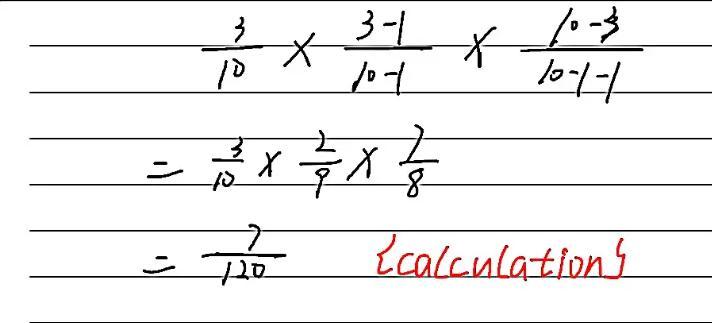 3/10 × (3-1)/(10-1) × (10-3)/(10-1-1)
= 3/10 × 2/9 × 7/8
= 7/120 {calculation}